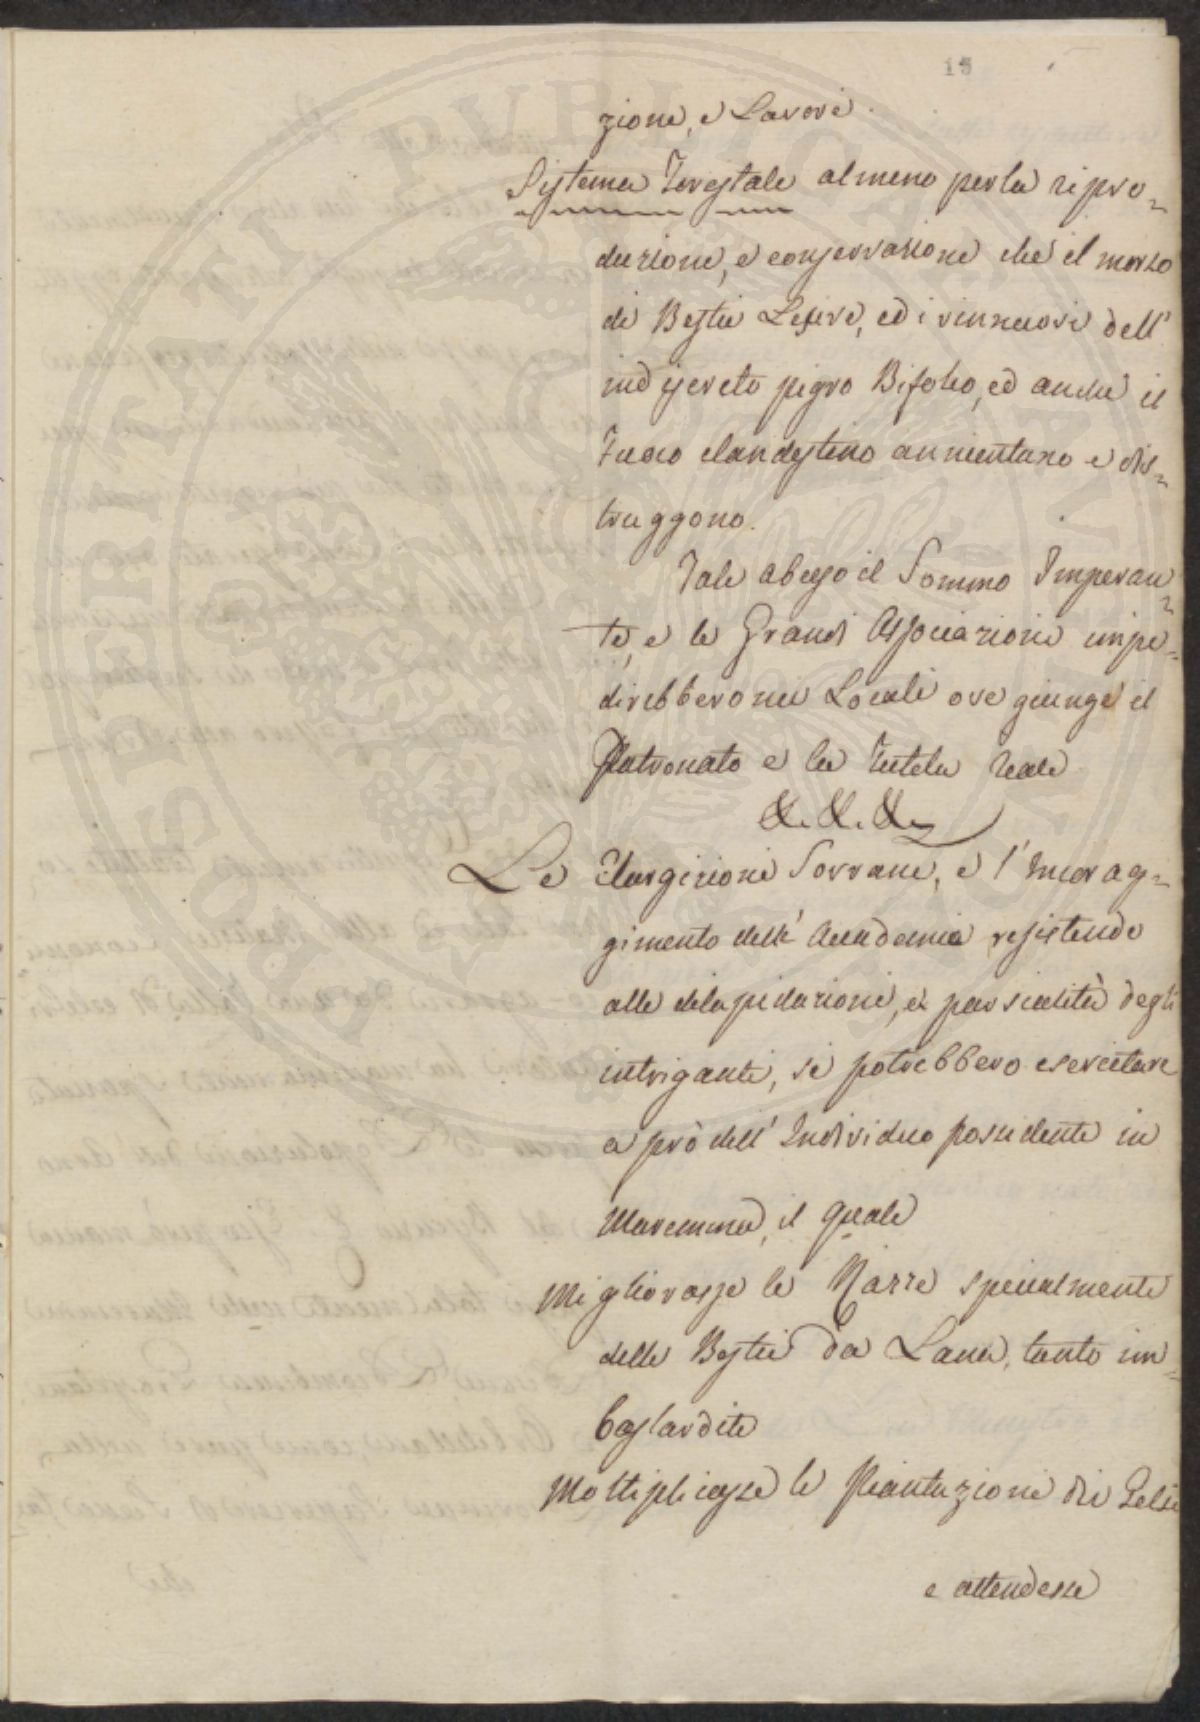 15
zione, e Lavori.
Sistema Forestale almeno per la ripro=
duzione, e conservazione che il morso
di Bestie Lesive, ed i rinnuovi dell'
indiscreto pigro Bifolco, ed anche il
Fuoco clandestino annientano e dis=
truggono.
Tale abuso il Sommo Imperan=
te, e le Grandi Associazioni impe=
direbbero nei Locali ove giunge il
Patronato e la Tutela reale
&. &. &.
Le Elargizioni Sovrane, e l'Incorag=
gimento dell' Accademia resistendo
alle dilapidazioni, e parzialità degli
intriganti, si potrebbero esercitare
a prò dell' Individuo possidente in
Maremma, il quale
Migliorasse le Razze specialmente
delle Bestie da Lana, tanto im=
bastardite
Moltiplicasse le Piantazioni dei Gelsi
e attendesse
SPQR